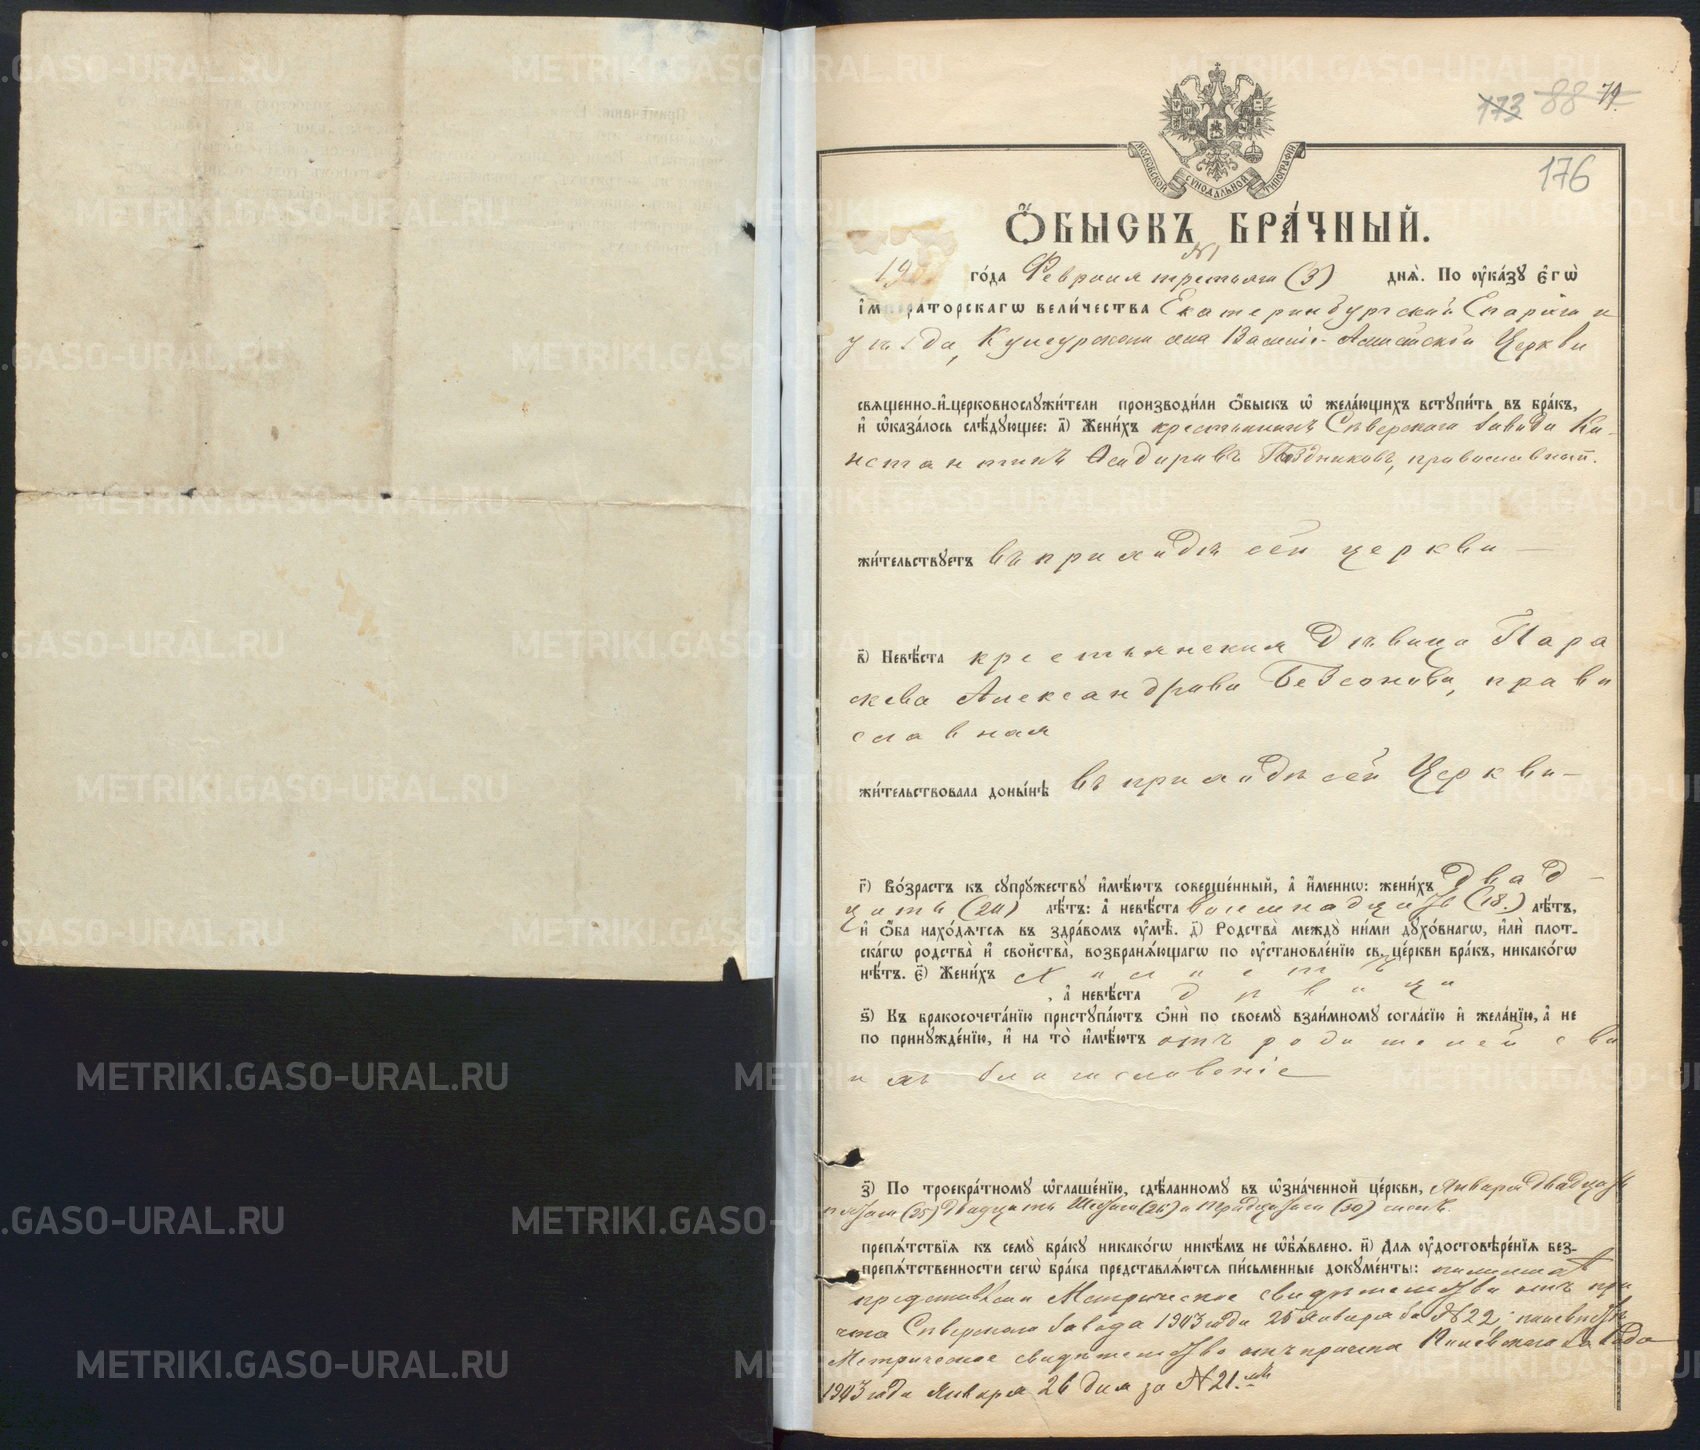 173 88 71.
176
МОСКОВСКОЙ СѴНОДАЛЬНОЙ ТИПОГРАФІИ
Ѻ҆БЫСКЪ БРА́ЧНЫЙ.
№1
го́да Февраля третьяго (3) днѧ̀. По ᲂу҆ка́зꙋ є҆гѡ̀
і҆мператорскагѡ вели́чества Екатеринбургской Епархіи и
уѣзда, Кунгурскаго села Церкви
свѧще́нно-и҆-церковнослꙋжи́тели производи́ли ѻ҆́быскъ ѡ҆ жела́ющихъ встꙋпи́ть въ бра́къ,
и҆ ѡ҆каза́лось слѣ́дꙋющее: а҃) Жени́хъ крестьянинъ Сѣверскаго завода Ко-
нстантинъ Ѳеодоровъ православный.
жи́тельствꙋетъ въ приходѣ сей церкви —
в҃) Невѣ́ста крестьянская дѣвица Пара
скева Александрова право
славная
жи́тельствовала доны́нѣ въ приходѣ сей Церкви —
г҃) Во́зрастъ къ сꙋпрꙋ́жествꙋ и҆мѣ́ютъ соверше́нный, а҆ и҆́меннѡ: жени́хъ двад-
цать (20) лѣ́тъ: а҆ невѣ́ста восемнадцать (18.) лѣ́тъ,
и҆ ѻ҆́ба нахо́дѧтсѧ въ здра́вомъ ᲂу҆мѣ̀. д҃) Родства̀ междꙋ̀ ни́ми дꙋхо́внагѡ, и҆лѝ пло́т-
скагѡ родства̀ и҆ сво́йства, возбранѧ́ющагѡ по ᲂу҆становле́нїю св. це́ркви бра́къ, никако́гѡ
нѣ́тъ. є҃) Жени́хъ холостъ
, а҆ невѣ́ста дѣвица
ѕ҃) Къ бракосочета́нїю пристꙋпа́ютъ ѻ҆нѝ по своемꙋ̀ взаи́мномꙋ согла́сїю и҆ жела́нїю, а҆ не
по принꙋжде́нїю, и҆ на то̀ и҆мѣ́ютъ отъ родителей сво
ихъ благословеніе
з҃) По троекра́тномꙋ ѡ҆глаше́нїю, сдѣ́ланномꙋ въ ѡ҆зна́ченной це́ркви, Января двадцать
пятаго (25) двадцать шестаго (26) и тридцатаго (30) чиселъ.
препѧ́тствїѧ къ семꙋ̀ бра́кꙋ никако́гѡ никѣ́мъ не ѡ҆б̾ѧ́влено. и҃) Длѧ ᲂу҆достовѣре́нїѧ без-
препѧ́тственности сегѡ̀ бра́ка представлѧ́ютсѧ пи́сьменные докꙋме́нты:
представлено Метрическое свидѣтельство отъ при
чта Сѣверскаго завода 1903 года 25 Января за №22;
Метрическое свидѣтельство отъ причта завода
1903 года Января 26 дня за №21.мъ